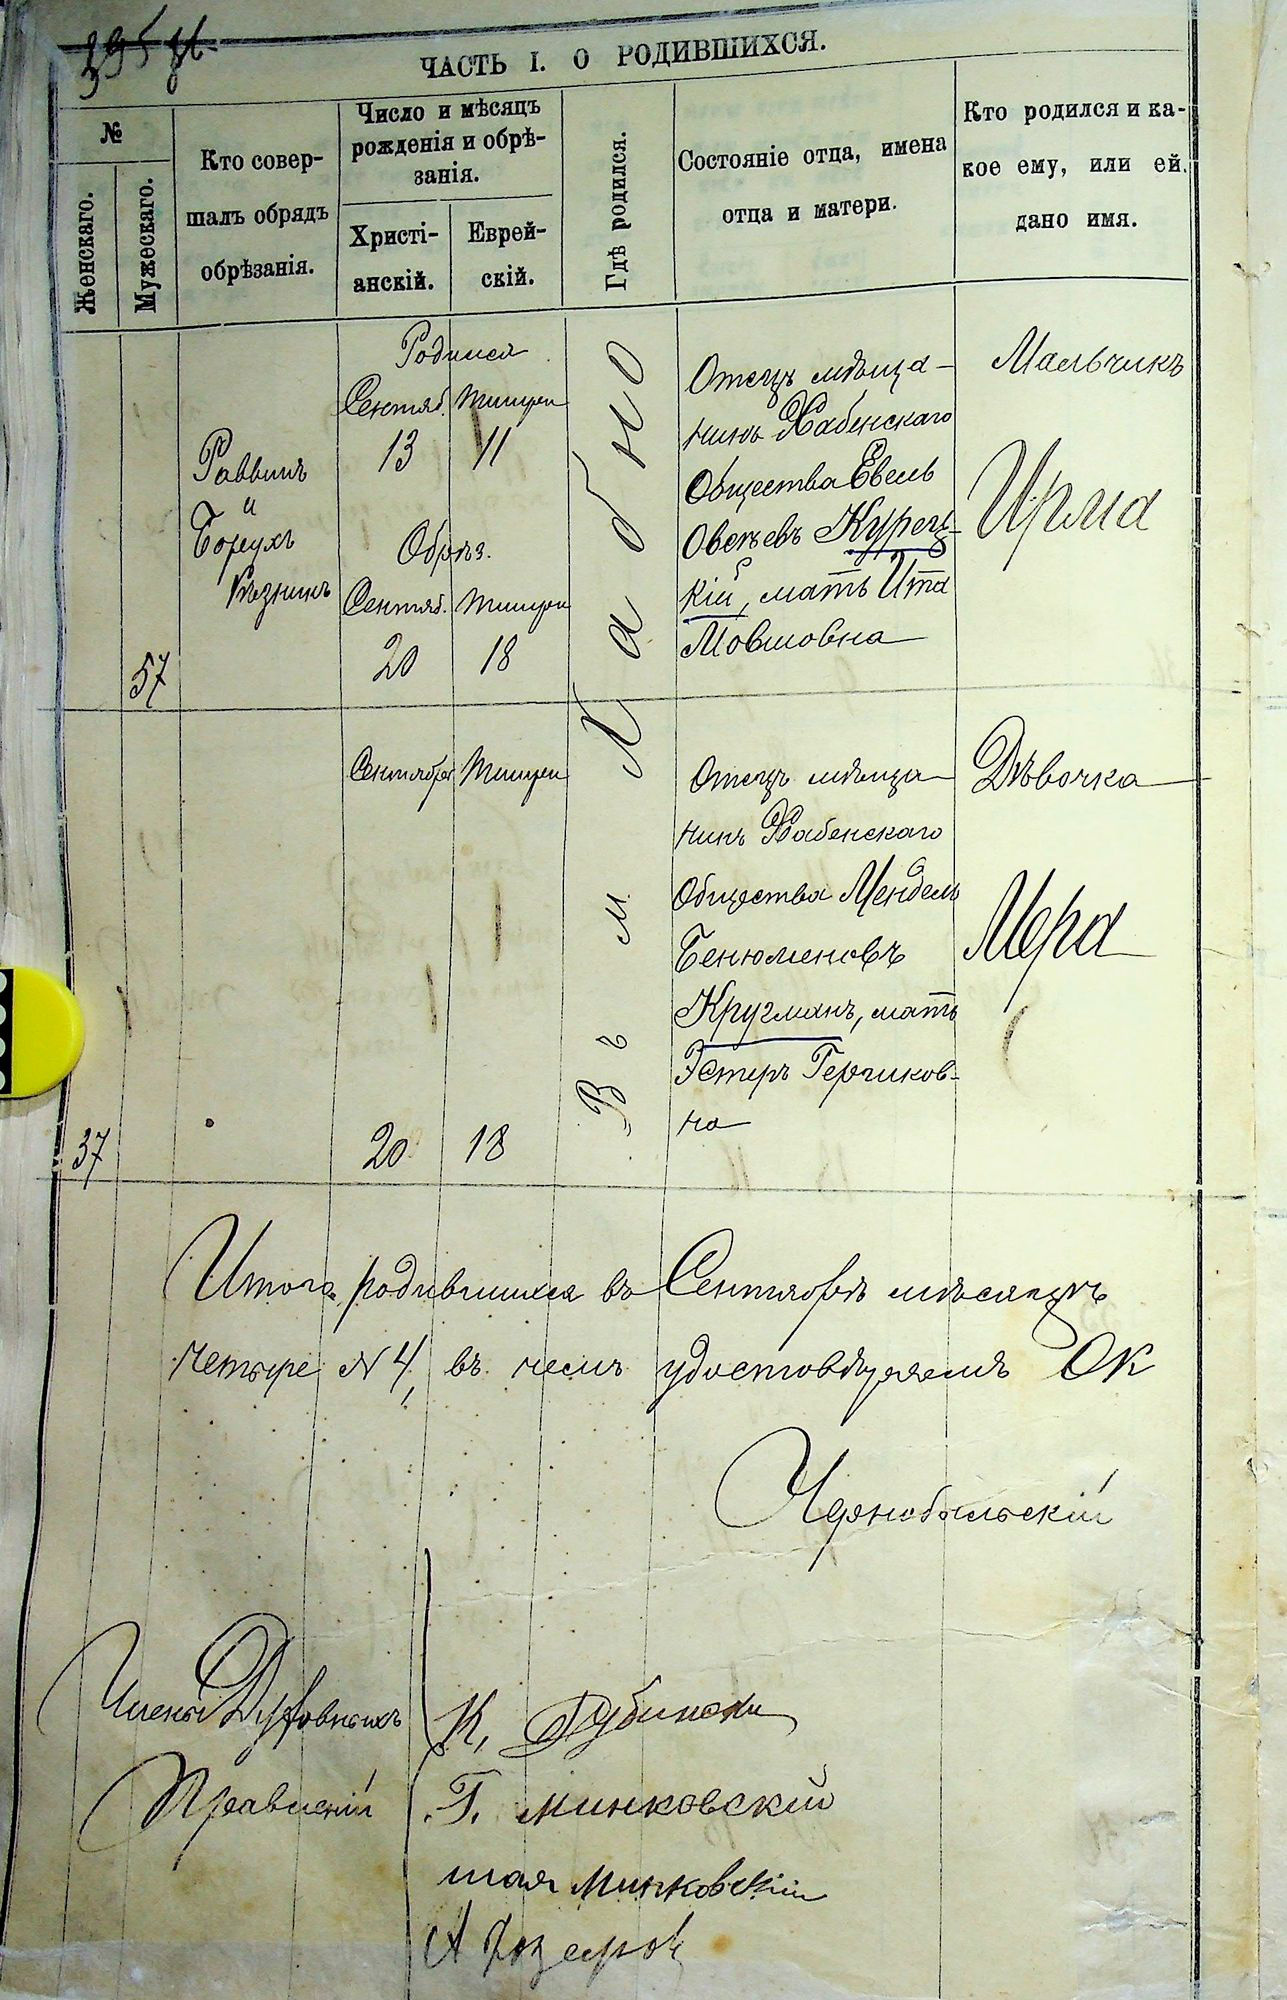 ЧАСТЬ I. О РОДИВШИХСЯ.
№
Женскаго.
Мужескаго.
Кто совер-
шалъ обрядъ
обрѣзанія.
Число и мѣсяцъ
рожденія и обрѣ-
занія.
Христі-
анскій.
Еврей-
скій.
Гдѣ родился.
Состояніе отца, имена
отца и матери.
Кто родился и ка-
кое ему, или ей
дано имя.
57
Раввинъ
и
Борухъ
Рѣзникъ
Родился
Сентяб. Тишреи
13 11
Обрѣз.
Сентяб. Тишреи
20 18
Въ м. Хабно
Отецъ мѣща-
нинъ Хабенскаго
Общества Евель
Овсѣевъ Курец-
кій, мать Ита
Мовшовна
Мальчикъ
Ирма
37
Сентября Тишреи
20 18
Отецъ мѣща
нинъ Хабенскаго
Общества Мендель
Бенюменовъ
Кругманъ, мать
Эстеръ Герчиков-
на
Дѣвочка
Мера
Итого родившихся въ Сентябрѣ мѣсяцѣ
четыре № 4, въ чемъ удостовѣряемъ ОК
Чернобыльскій
Члены Духовныхъ
Правленій
К. Дубински
Г. Минковскій
шая Минковскій